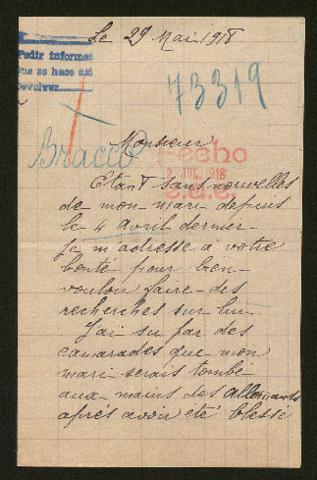 Le 29 Mai 1918
Pedir informes
que se hace así
Devolver
73319
Bracco
Monsieur
Fecho
2 JUL. 1918
Etant sans nouvelles
de mon mari depuis
le 4 avril dernier
Je m'adresse a votre
bonté pour bien
vouloir faire des
recherches sur lui
J'ai su par des
camarades que mon
mari serais tombé
aux mains des allemands
aprés avoir été blesse